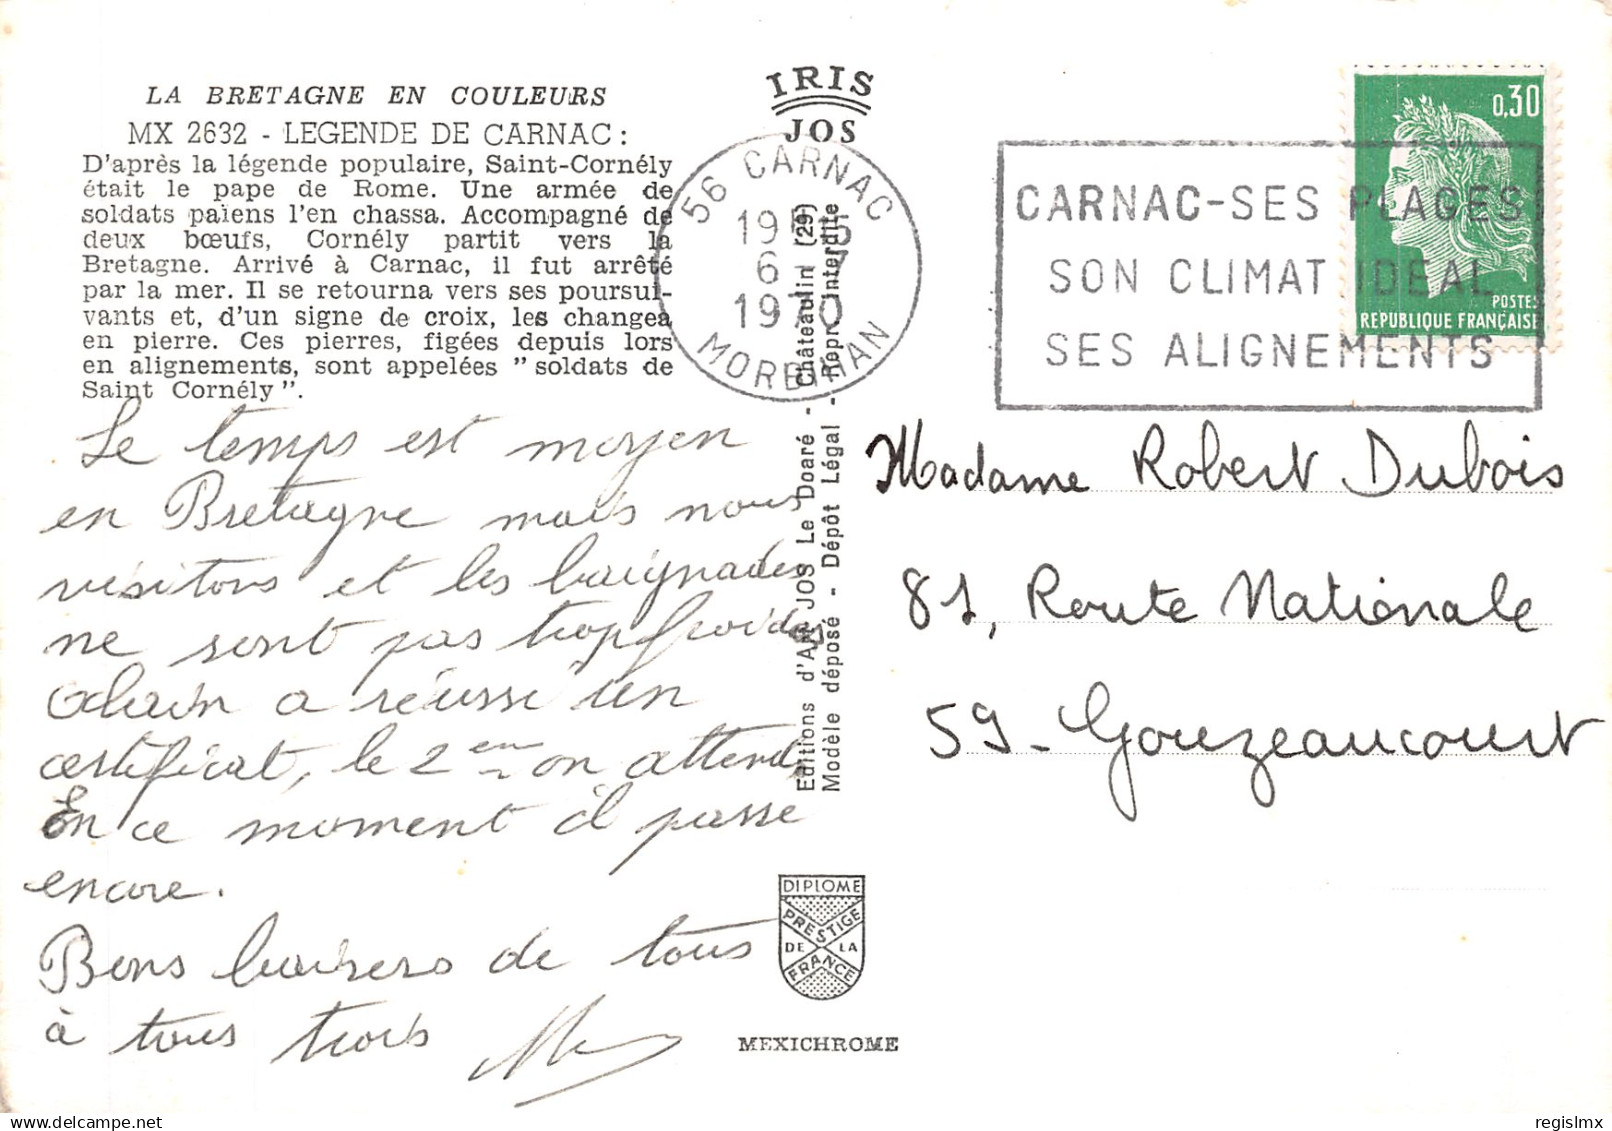 LA BRETAGNE EN COULEURS
MX 2632 - LEGENDE DE CARNAC :
D'après la légende populaire, Saint-Cornély
était le pape de Rome. Une armée de
soldats païens l'en chassa. Accompagné de
deux bœufs, Cornély partit vers la
Bretagne. Arrivé à Carnac, il fut arrêté
par la mer. Il se retourna vers ses poursui-
vants et, d'un signe de croix, les changea
en pierre. Ces pierres, figées depuis lors
en alignements, sont appelées " soldats de
Saint Cornély ".
Le temps est moyen
en Bretagne mais nous
visitons et les baignades
ne sont pas trop froides
Alain a réussi un
certificat, le 2 em on attend,
En ce moment il passe
encore.
Bons baisers de tous
à tous trois
IRIS
JOS
56 CARNAC
6 - 7
1970
MORBIHAN
Editions d'Art JOS Le Doaré - Châteaulin (29)
Modèle déposé - Dépôt Légal - Repr. interdite
DIPLOME
PRESTIGE
DE LA
FRANCE
MEXICHROME
CARNAC-SES PLAGES
SON CLIMAT IDEAL
SES ALIGNEMENTS
0,30
POSTES
REPUBLIQUE FRANÇAISE
Madame Robert Dubois
81, Route Nationale
59 - Gouzeaucourt
regislmx